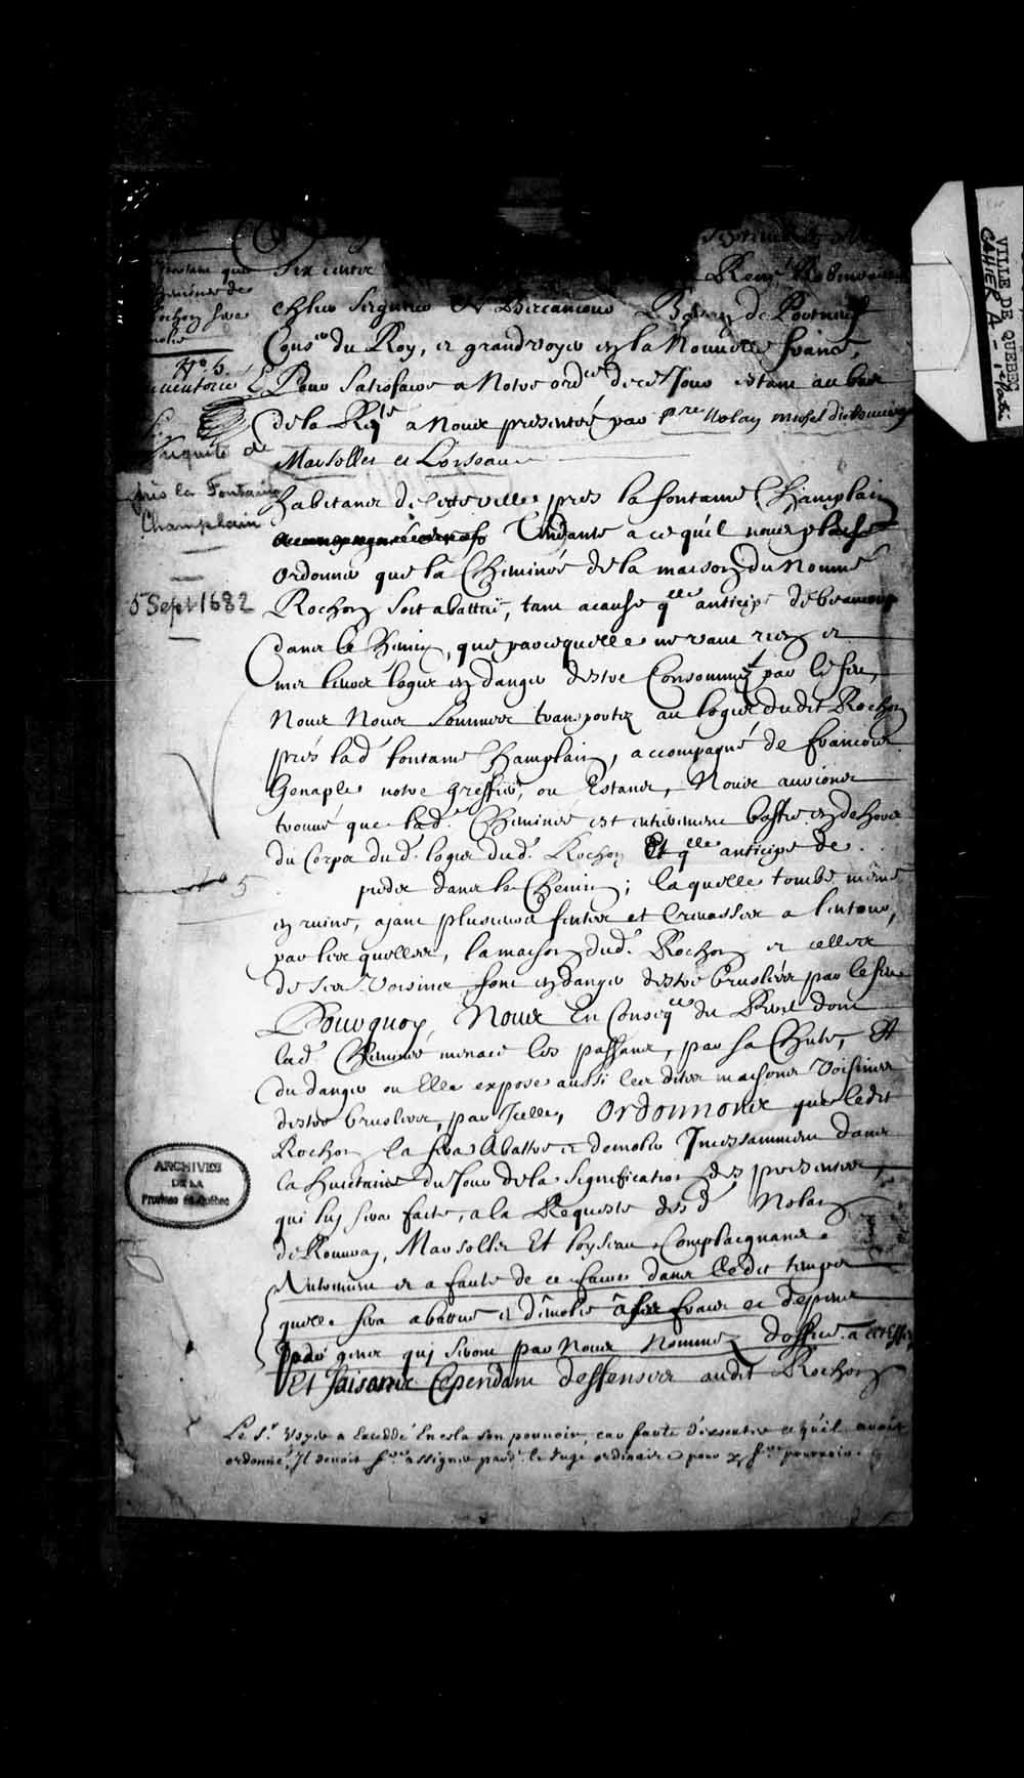 Six cents
René Robineau
Chlier Seigneur de Becancour Baron de Portneuf
Conser du Roy, et grand voyer en la Nouvelle france,
Pour satisfaire a Notre ordce de ce Jour estant au bas
de la Reqte a Nous presentée par pre Nolan michel
Marsollet et Loiseau
habitans de cette ville, pres la fontaine Champlain
Tendante a ce qu'il nous plaise
ordonner que la Cheminée de la maison du Nommé
Rochon soit abattue, tant acause qlle anticipe de beaucoup
dans le Chemin, que parcequelle ne vaut rien et
met leurs logis en danger destre Consommez par le feu,
Nous Nous Sommes transportez au logis dudit Rochon
prés lad. fontaine Champlain, accompagné de francois
Genaple notre greffier, ou Estans, Nous aurions
trouvé que lad. Cheminée est entierement bastie en dehors
du Corps dud. logis dud. Rochon Et qlle anticipe de
pieds dans le Chemin; laquelle tombe même
en ruine, ajant plusieurs fentes et Crevasses a lentour,
par lesquelles, la maison dud. Rochon et celles
de ses Voisins, sont en danger destre bruslées par le feu
Pourquoy, Nous En Conseqce du Peril dont
lad. Cheminée menace les passans, par sa Chute, Et
du danger ou Elle expose aussi les dites maisons Voisines
destre bruslées, par Icelle, Ordonnons que ledit
Rochon la fera Abattre et demolir Incessamment dans
la huictaine du Jour de la Signification des presentes,
qui luy sera faite, a la Requeste desd. Nolan
Marsollet Et loyseau Complaignans.
Autrement et a faute de ce faire dans ledit temps
quelle sera abattue et démolie à ses frais et despens
par gens quj seront par Nous Nommez d'office a cet effet
Et faisons Cependant deffenses audit Rochon
Le Sr Voyer a Excedde En cela son pouvoir, car faute d'executer ce qu'il avoit
ordonné, Il devoit fre assigner pardt le Juge ordinaire pour y fre pourvoir.
Cheminée de
Rochon sera
No 5.
Requete de
près la Fontaine
Champlain
5 Sept 1682
No 5
ARCHIVES
DE LA
Province de Québec
VILLE DE QUEBEC
CAHIER A-